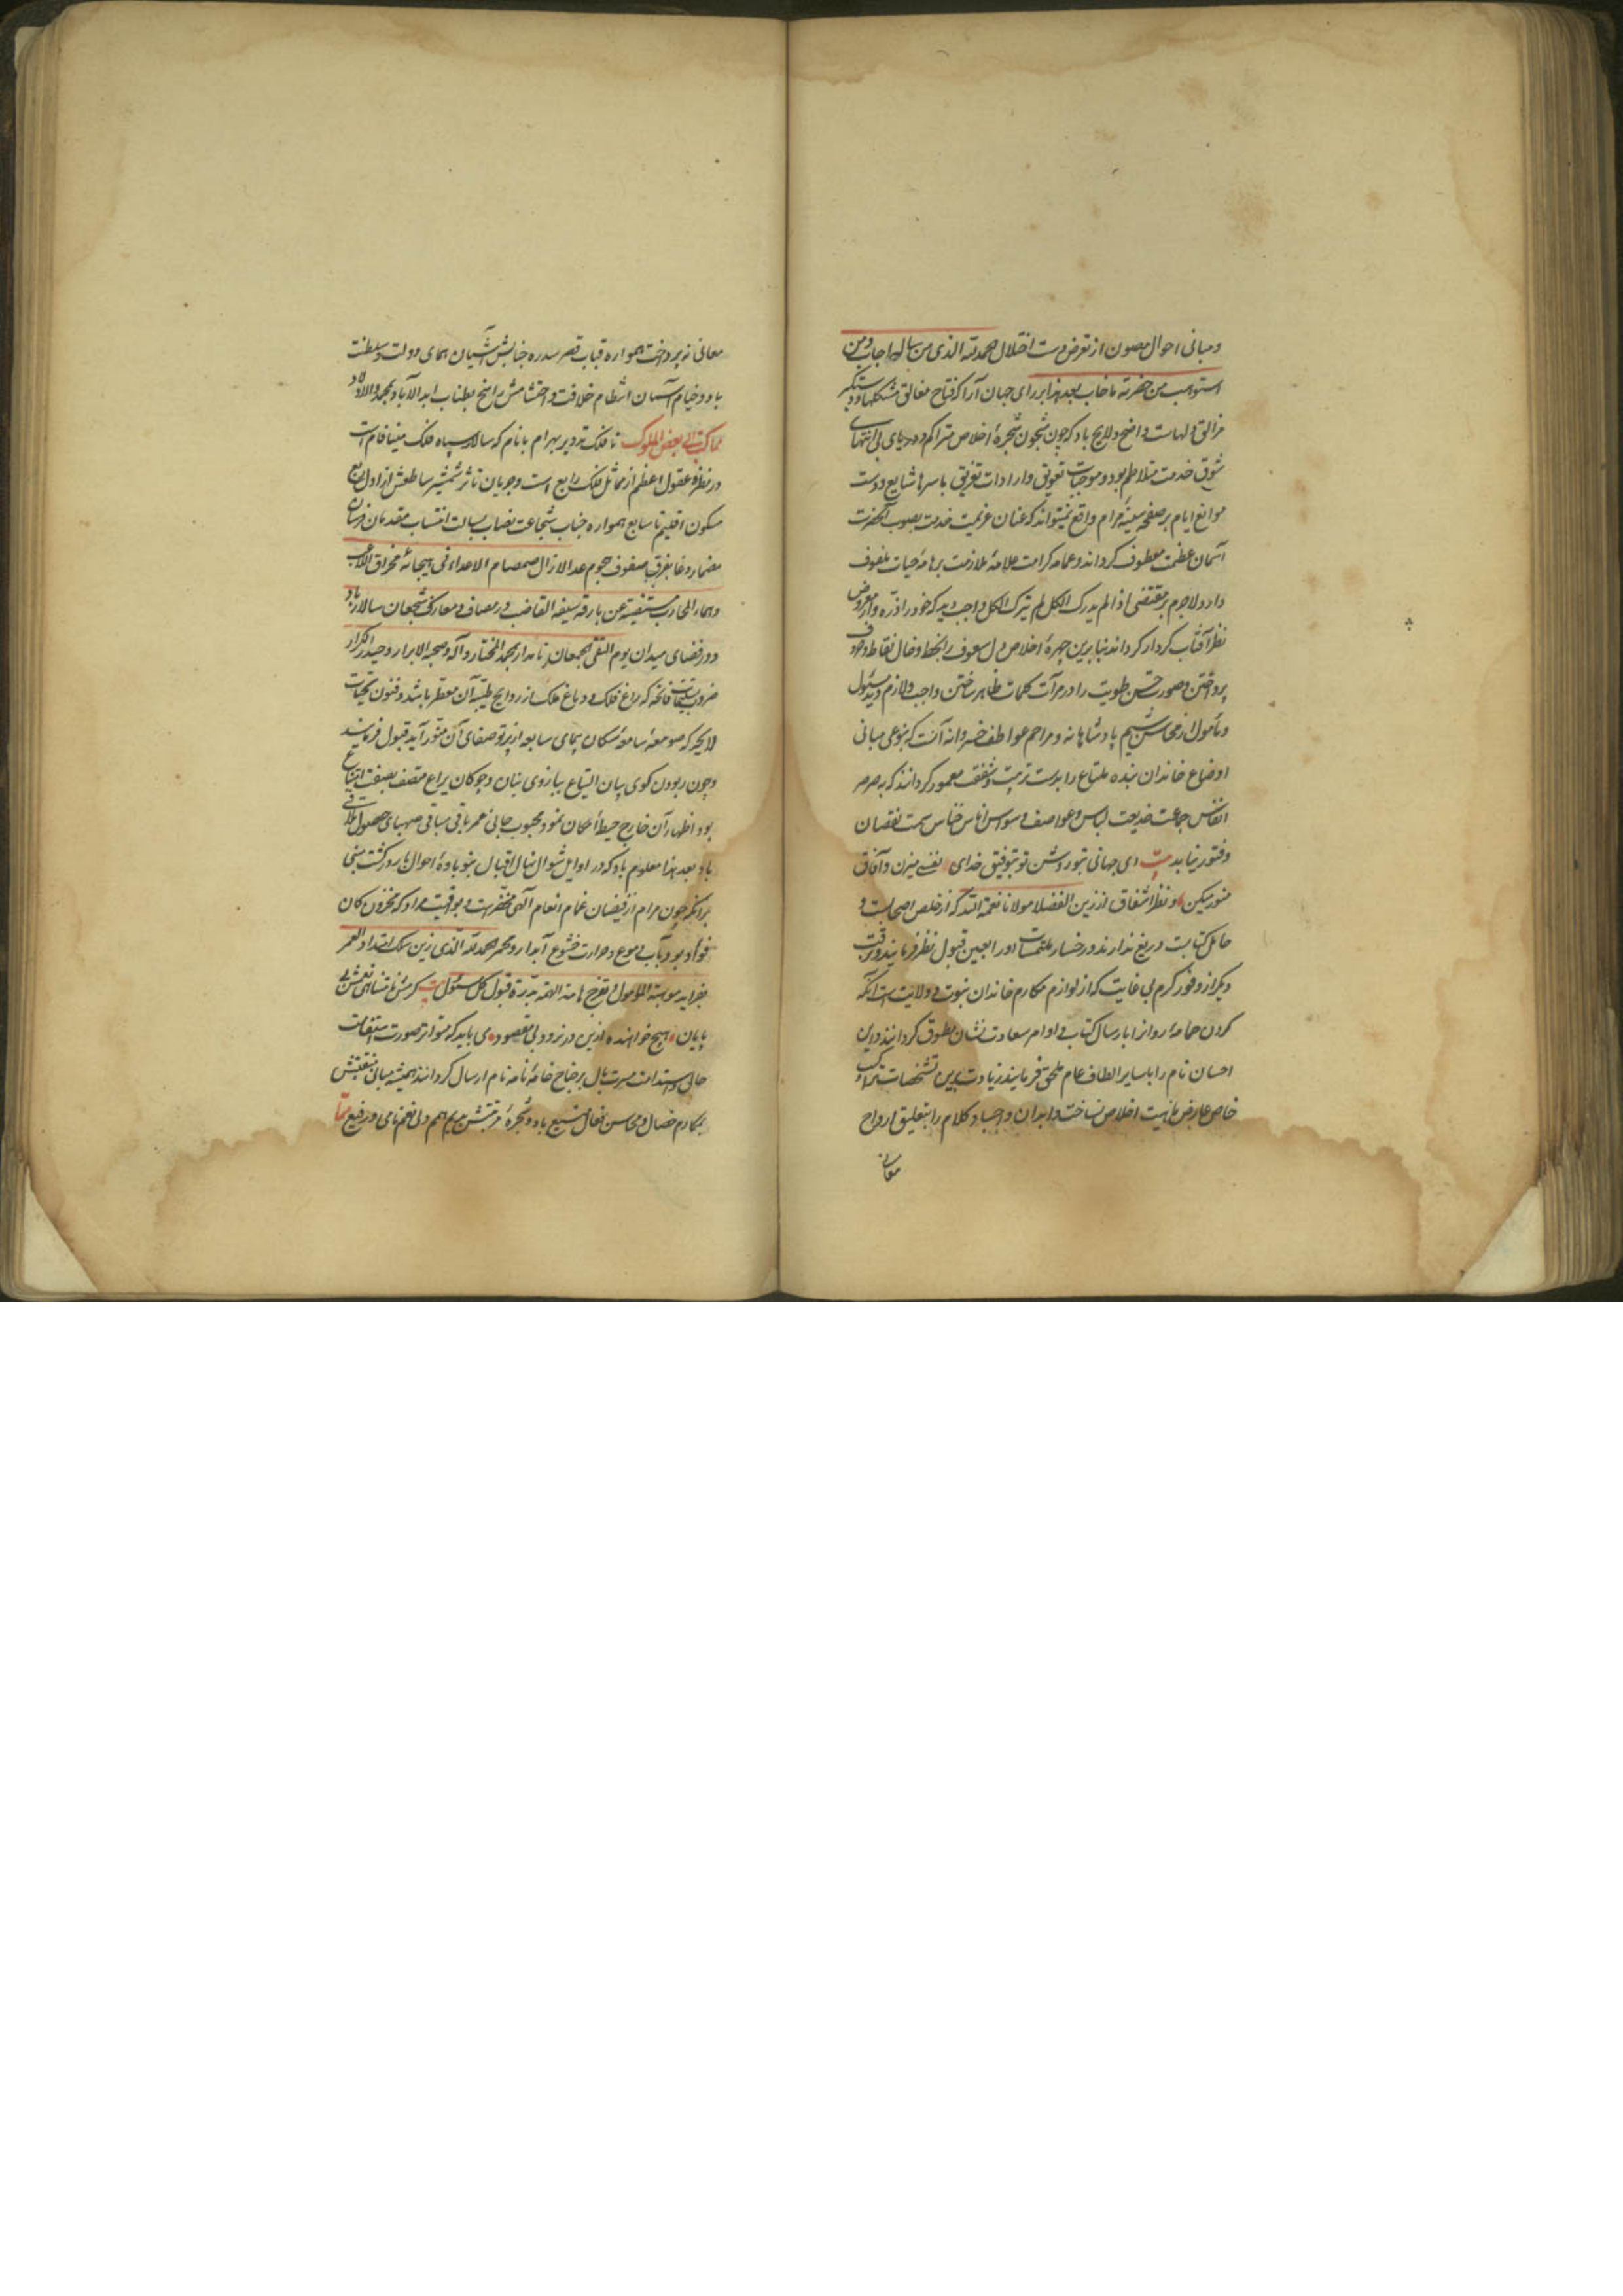 و مبانی احوال مصون از تعرض دست اختلال الحمدلله الذی من ساله اجاب و من
استوهب من حضرته ما خاب بعد هذا بر رای جهان آرا که مفتاح مغالق مشکلها و دستگیر
مزالق دلهاست واضح و لایح باد که چون شجون شجره اخلاص متراکم و دریای بی انتهای
شوق خدمت متلاطم بود و موجبات تعویق و ارادات تفریق باسرها شایع و دست
موانع ایام بر صفحه مرام واقع نمیتواند که عنان عزیمت خدمت بصوب آنحضرت
آسمان عظمت معطوف گرداند و عمامه کرامت علامه ملازمت بر هامه حیات ملفوف
دارد لاجرم بر مقتضی اذا لم یدرک الکل لم یترک الکل واجب دید که خود را ذره وار معروض
نظر آفتاب کردار گرداند بنابرین چهره اخلاص دل را بخط و خال نقاط و حروف
پرداختن و صورت حسن طویت را در مرآت کلمات ظاهر ساختن واجب و لازم دید مسئول
و مأمول از محاسن شیم پادشاهانه و مراحم عواطف خسروانه آنست که بنوعی مبانی
اوضاع خاندان بنده ملتاع را بدست تربیت و شفقت معمور گردانند که به صرصر
انفاس جماعت خدیعت لباس و عواصف وسواس اناس خناس سمت نقصان
و فتور نیابد بیت ای جهانی بتو روشن تو بتوفیق خدای نفسی میزن و آفاق
منور میکن و نظر اشفاق از زین الفضلا مولانا نعمة الله که از خلص اصحاب است و
حامل کتابت دریغ ندارند و رخسار ملتمسات او را بعین قبول نظر فرمایند و رقبت
دیگر از وفور کرم بی غایت که از لوازم مکارم خاندان نبوت و ولایت است آنکه
گردن حمامه روانرا بارسال کتاب و اوامر سعادت نشان مطوق گردانند و این
احسان تام را با سایر الطاف عام ملحق فرمایند زیادت بدین تشخصات تراکیب
خاص عارض ماهیت اخلاص نساخت و ابدان و اجساد کلام را بتعلیق ارواح
معانی
معانی نپرداخت همواره قباب قصر سدره جنابش آشیان همای دولت و سلطنت
باد و خیام آسمان انتظام خلافت و احتشامش راسخ بطناب ابد الآباد بمحمد و آله الامجاد
مما کتب الی بعض الملوک تا فلک تدویر بهرام با نام که سالار سپاه فلک مینافام است
در نظره عقول اعظم از مماثل فلک رابع است و جریان تاثر شمشیر ساطعش از اول ربع
مسکون اقلیم تا سابع همواره جناب شجاعت نصاب بسالت انتساب مقدمان فرسان
مضمار وغا بفرق صفوف هجوم عدا لازال صمصام الاعداء فی هیجائه مخراق اللاعب
و دماء المحارب مستفیضة عن بارقة سیفه القاضب در مصاف و معارک شجعان سالار باد
و در فضای میدان یوم التقی الجمعان نامدار بمحمد المختار و آله و صحبه الابرار و حیدر الکرار
ضروب تحیات فایحه که دماغ فلک و دماغ ملک از روایح طیبه آن معطر باشد و فنون تحیات
لایحه که صومعه سامعه سکان سمای سابعه از پرتو صفای آن منور آید قبول فرمایند
و چون ربودن گوی بیان التیاع ببازوی بنان و چوگان یراع متصف بصفت امتناع
بود اظهار آن خارج حیطه امکان نمود محبوب جانی عمر باقی بساقی صهبای حصول تلاقی
باد بعد هذا معلوم باد که در اوایل شوال نهال اقبال بنوباوه احوال بارور گشت مبنی
بر آنکه چون مرام از فیضان غمام انعام الهی مخضر است و یواقیت مراد که مخزون کان
فواد بود بآب دموع و حرارت خشوع آبدار و محمر الحمد لله الذی زین سلک امتداد العمر
بفراید موهبة المامول و تفرج هامة الهمة بدرة قبول کل مسئول بیت کرمش نامتناهی نعمش بی
پایان هیچ خواهنده ازین در نرود بی مقصود می باید که متواتر صورت استقامت
حال و استدامت مسرت بال بر جناح خامه نامه نام ارسال گردانند همیشه مبانی منقبتش
بمکارم خصال و محاسن فعال مشیع باد و شجره مرتبتش بریم همم ولی نعم نامی و رفیع مما